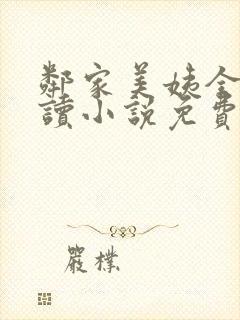 鄰家美姨全
讀小說免費
嚴樸